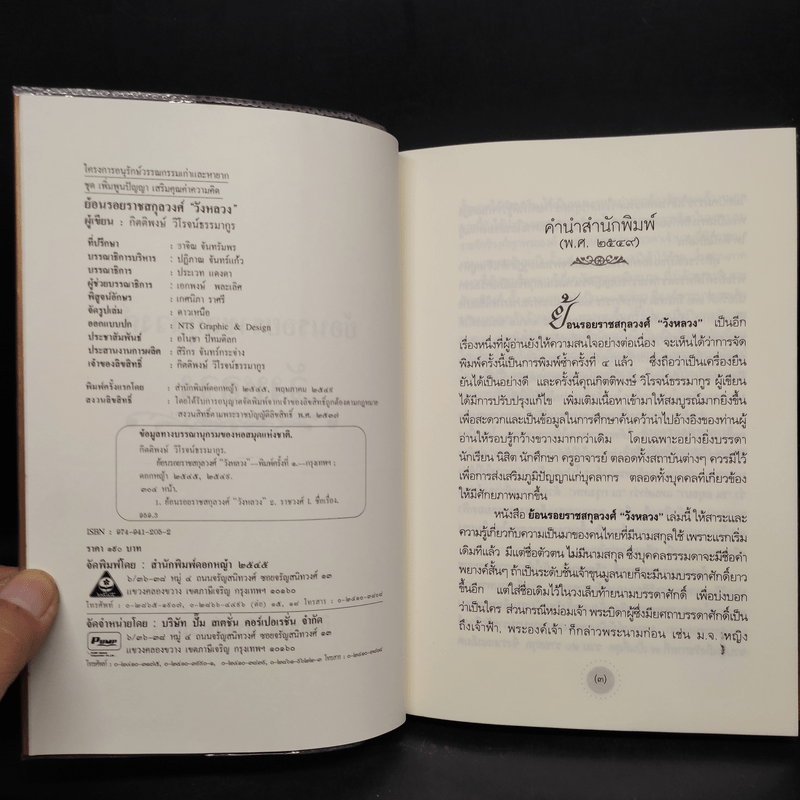 โครงการอนุรักษ์วรรณกรรมเก่าและหายาก
ชุด เพิ่มพูนปัญญา เสริมคุณค่าความคิด
ย้อนรอยราชสกุลวงศ์ "วังหลวง"
ผู้เขียน : กิตติพงษ์ วิโรจน์ธรรมากูร
ที่ปรึกษา : วาชิณ จันทรัมพร
บรรณาธิการบริหาร : ปฏิภาณ จันทร์แก้ว
บรรณาธิการ : ประเวท แดงดา
ผู้ช่วยบรรณาธิการ : เอกพงษ์ พละเลิศ
พิสูจน์อักษร : เกศนิภา ราศรี
จัดรูปเล่ม : ดาวเหนือ
ออกแบบปก : NTS Graphic & Design
ประชาสัมพันธ์ : อโนชา ปัทมดิลก
ประสานงานการผลิต : สิริกร จันทร์กระจ่าง
เจ้าของลิขสิทธิ์ : กิตติพงษ์ วิโรจน์ธรรมากูร
พิมพ์ครั้งแรกโดย : สำนักพิมพ์ดอกหญ้า ๒๕๔๕, พฤษภาคม ๒๕๔๙
สงวนลิขสิทธิ์ : โดยได้รับการอนุญาตจัดพิมพ์จากเจ้าของลิขสิทธิ์ถูกต้องตามกฎหมาย
สงวนสิทธิ์ตามพระราชบัญญัติลิขสิทธิ์ พ.ศ. ๒๕๓๗
ข้อมูลทางบรรณานุกรมของหอสมุดแห่งชาติ.
กิตติพงษ์ วิโรจน์ธรรมากูร.
ย้อนรอยราชสกุลวงศ์ "วังหลวง"--พิมพ์ครั้งที่ ๑.--กรุงเทพฯ :
ดอกหญ้า ๒๕๔๕, ๒๕๔๙.
๓๐๔ หน้า.
1. ย้อนรอยราชสกุลวงศ์ "วังหลวง" ๒. ราชวงศ์ I. ชื่อเรื่อง.
ISBN : 974-941-205-2
ราคา ๑๕๐ บาท
จัดพิมพ์โดย : สำนักพิมพ์ดอกหญ้า ๒๕๔๕
๖/๓๖-๓๘ หมู่ ๔ ถนนจรัญสนิทวงศ์ ซอยจรัญสนิทวงศ์ ๑๓
แขวงคลองขวาง เขตภาษีเจริญ กรุงเทพฯ ๑๐๑๖๐
จัดจำหน่ายโดย : บริษัท ปั๊ม สเตชั่น คอร์เปอเรชั่น จำกัด
๖/๓๖-๓๘ หมู่ ๔ ถนนจรัญสนิทวงศ์ ซอยจรัญสนิทวงศ์ ๑๓
แขวงคลองขวาง เขตภาษีเจริญ กรุงเทพฯ ๑๐๑๖๐
คำนำสำนักพิมพ์
(พ.ศ. ๒๕๔๙)
ย้อนรอยราชสกุลวงศ์ "วังหลวง" เป็นอีก
เรื่องหนึ่งที่ผู้อ่านยังให้ความสนใจอย่างต่อเนื่อง จะเห็นได้ว่าการจัด
พิมพ์ครั้งนี้เป็นการพิมพ์ซ้ำครั้งที่ ๔ แล้ว ซึ่งถือว่าเป็นเครื่องยืน
ยันได้เป็นอย่างดี และครั้งนี้คุณกิตติพงษ์ วิโรจน์ธรรมากูร ผู้เขียน
ได้มีการปรับปรุงแก้ไข เพิ่มเติมเนื้อหาเข้ามาให้สมบูรณ์มากยิ่งขึ้น
เพื่อสะดวกและเป็นข้อมูลในการศึกษาค้นคว้านำไปอ้างอิงของท่านผู้
อ่านให้รอบรู้กว้างขวางมากกว่าเดิม โดยเฉพาะอย่างยิ่งบรรดา
นักเรียน นิสิต นักศึกษา ครูอาจารย์ ตลอดทั้งสถาบันต่างๆ ควรมีไว้
เพื่อการส่งเสริมภูมิปัญญาแก่บุคลากร ตลอดทั้งบุคคลที่เกี่ยวข้อง
ให้มีศักยภาพมากขึ้น
หนังสือ ย้อนรอยราชสกุลวงศ์ "วังหลวง" เล่มนี้ ให้สาระและ
ความรู้เกี่ยวกับความเป็นมาของคนไทยที่มีนามสกุลใช้ เพราะแรกเริ่ม
เดิมทีแล้ว มีแต่ชื่อตัวตน ไม่มีนามสกุล ซึ่งบุคคลธรรมดาจะมีชื่อคำ
พยางค์สั้นๆ ถ้าเป็นระดับชั้นเจ้าขุนมูลนายก็จะมีนามบรรดาศักดิ์ยาว
ขึ้นอีก แต่ใส่ชื่อเดิมไว้ในวงเล็บท้ายนามบรรดาศักดิ์ เพื่อบ่งบอก
ว่าเป็นใคร ส่วนกรณีหม่อมเจ้า พระบิดาผู้ซึ่งมียศถาบรรดาศักดิ์เป็น
ถึงเจ้าฟ้า, พระองค์เจ้า ก็กล่าวพระนามก่อน เช่น ม.จ. หญิง
(๓)